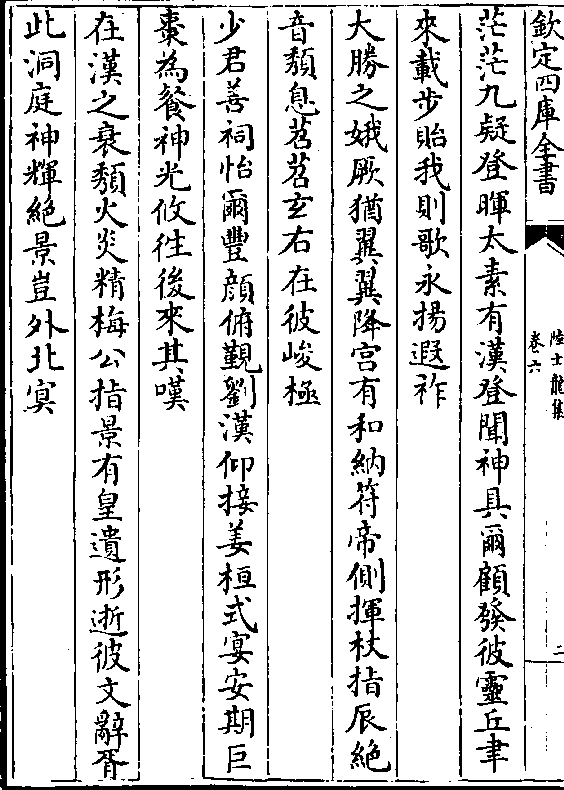 欽定四庫全書
陸士龍集
卷六
二
茫茫九疑登暉太素有漢登聞神具爾顧發彼靈丘聿
來載步貽我則歌永揚遐祚
大勝之娥厥猶翼翼降宫有和納符帝側揮杖指辰絶
音頽息苕苕玄右在彼峻極
少君善祠怡爾豐顔俯觀劉漢仰接姜桓式宴安期巨
棗為餐神光攸往後來其嘆
在漢之衰頽火炎精梅公指景有皇遺形逝彼文辭胥
此洞庭神輝絶景豈外北寅